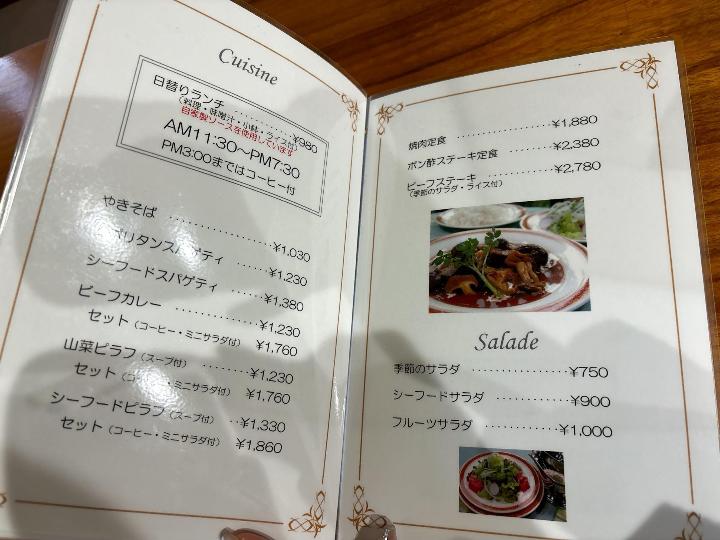 Cuisine
日替りランチ ············ ¥980
(料理・味噌汁・小鉢・ライス付)
自家製ソースを使用しています
AM11:30～PM7:30
PM3:00まではコーヒー付
やきそば ·················· ¥1,030
ポリタンスパゲティ ······ ¥1,230
シーフードスパゲティ ······ ¥1,380
ビーフカレー ·············· ¥1,230
セット (コーヒー・ミニサラダ付) ¥1,760
山菜ピラフ (スープ付) ········ ¥1,230
セット (コーヒー・ミニサラダ付) ¥1,760
シーフードピラフ (スープ付) ·· ¥1,330
セット (コーヒー・ミニサラダ付) ¥1,860
焼肉定食 ·················· ¥1,880
ポン酢ステーキ定食 ········ ¥2,380
ビーフステーキ ············ ¥2,780
(季節のサラダ・ライス付)
Salade
季節のサラダ ················ ¥750
シーフードサラダ ············ ¥900
フルーツサラダ ············ ¥1,000